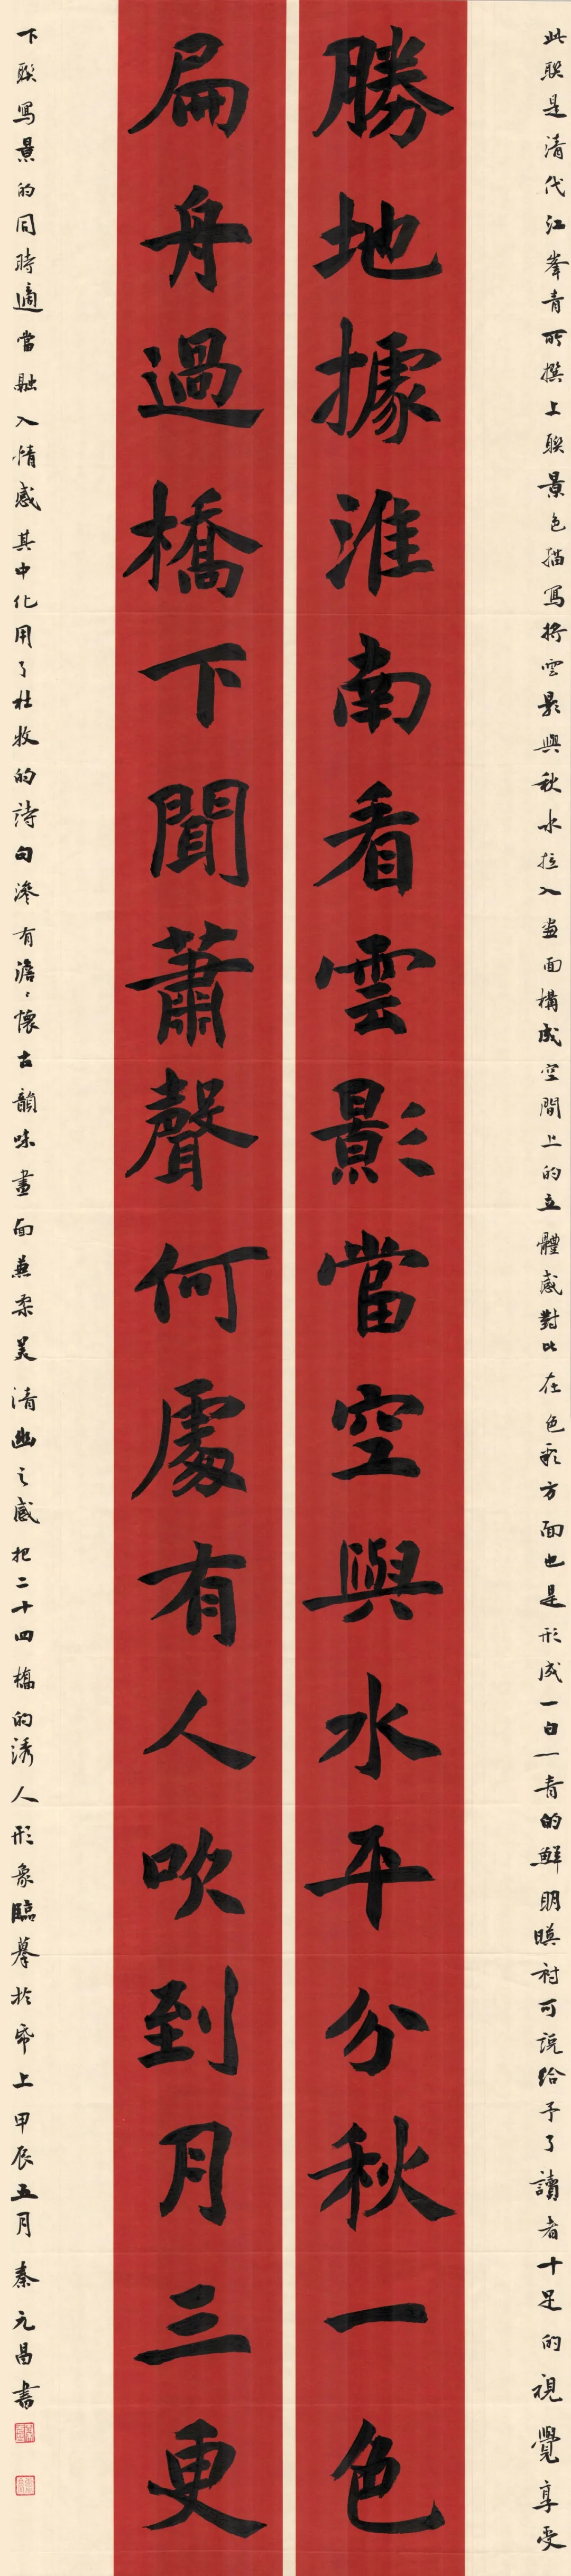 此聯是清代江峯青所撰上聯景色描寫將雲影與秋水拉入畫面構成空間上的立體感對比在色彩方面也是形成一白一青的鮮明暎衬可説給予了讀者十足的視覺享受
勝地據淮南看雲影當空與水平分秋一色
扁舟過橋下聞蕭聲何處有人吹到月三更
下聯寫景的同時適當融入情感其中化用了杜牧的詩句滲有澹〻懷古韻味畫面兼柔美清幽之感把二十四橋的誘人形象臨摹於帋上甲辰五月秦元昌書